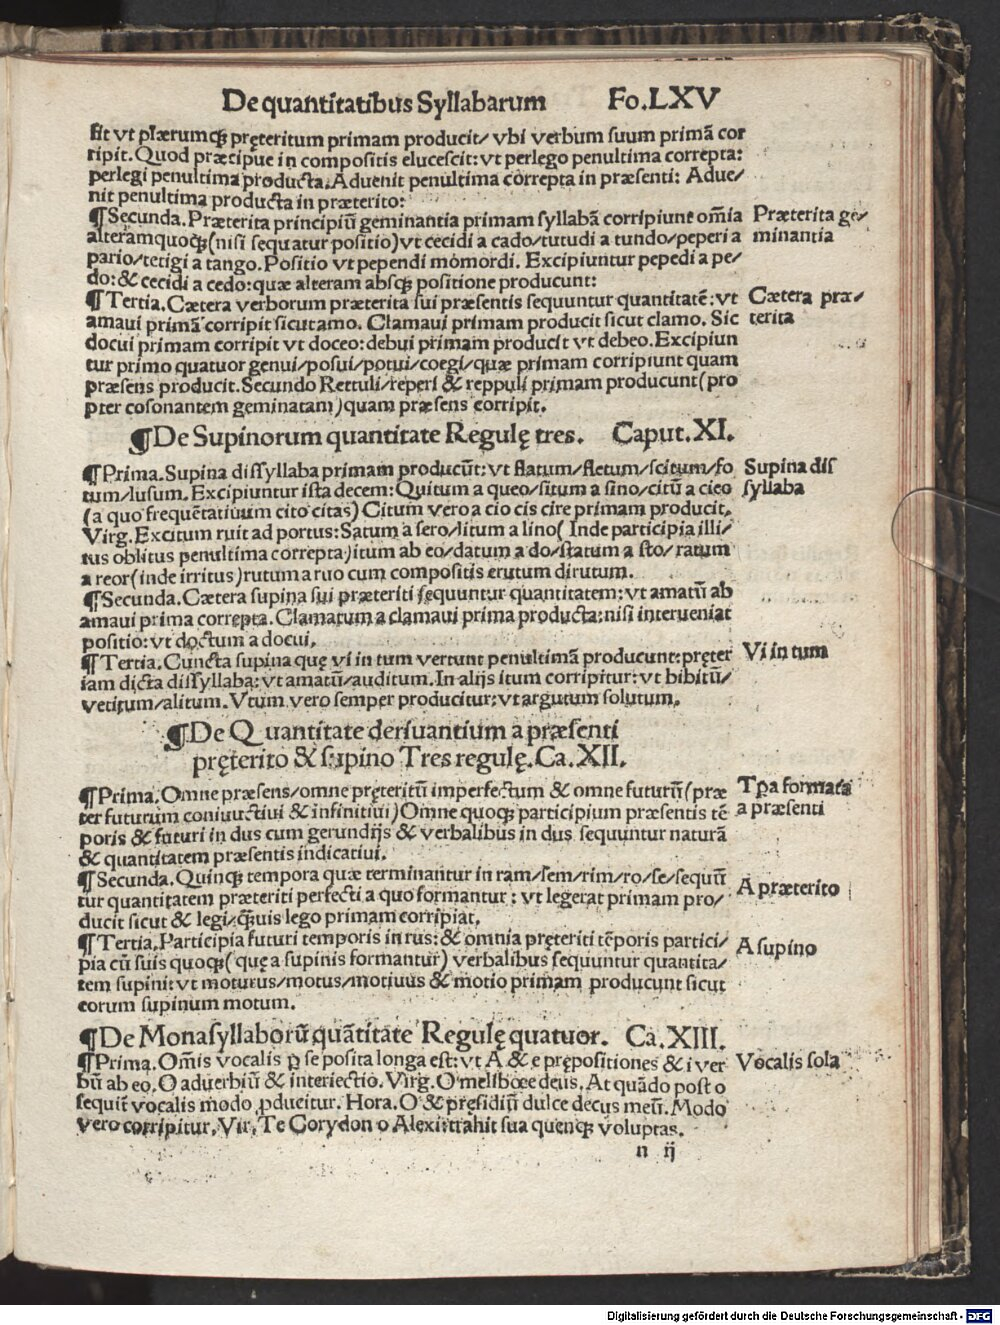 De quantitatibus Syllabarum Fo.LXV
fit vt plærumqꝫ pręteritum primam producit/ vbi verbum suum primã cor
ripit. Quod præcipue in compositis elucescit: vt perlego penultima correpta:
perlegi penultima producta. Aduenit penultima correpta in præsenti: Adue/
nit penultima producta in præterito:
¶Secunda. Præterita principiũ geminantia primam syllabã corripiunt om̃ia
alteramquoqꝫ(nisi sequatur positio)vt cecidi a cado/tutudi a tundo/peperi a
pario/tetigi a tango. Positio vt pependi momordi. Excipiuntur pepedi a pe/
do: & cecidi a cedo: quæ alteram absqꝫ positione producunt:
Præterita ge/
minantia
¶Tertia. Cætera verborum præterita sui præsentis sequuntur quantitatẽ: vt
amaui primã corripit sicut amo. Clamaui primam producit sicut clamo. Sic
docui primam corripit vt doceo: debui primam producit vt debeo. Excipiun
tur primo quatuor genui/posui/potui/coegi/quæ primam corripiunt quam
præsens producit. Secundo Rettuli/reperi & reppuli primam producunt(pro
pter cõsonantem geminatam)quam præsens corripit.
Cætera præ/
terita
¶De Supinorum quantitate Regulę tres. Caput.XI.
¶Prima. Supina dissyllaba primam producũt: vt flatum/fletum/scitum/fo
tum/lusum. Excipiuntur ista decem: Quitum a queo/situm a sino/citũ a cieo
(a quo frequẽtatiuum cito citas) Citum vero a cio cis cire primam producit.
Virg. Excitum ruit ad portus: Satum a sero/litum a lino( Inde participia illi/
tus oblitus penultima correpta)itum ab eo/datum a do/statum a sto/ratum
a reor(inde irritus)rutum a ruo cum compositis erutum dirutum.
Supina dis
syllaba
¶Secunda. Cætera supina sui præteriti sequuntur quantitatem: vt amatũ ab
amaui prima correpta. Clamatum a clamaui prima producta: nisi interueniat
positio: vt doctum a docui.
¶Tertia. Cuncta supina quę vi in tum vertunt penultimã producunt: pręter
iam dicta dissyllaba: vt amatũ/auditum. In alijs itum corripitur: vt bibitũ/
vetitum/alitum. Vtum vero semper producitur: vt argutum solutum.
Vi in tum
¶De Quantitate deriuantium a præsenti
pręterito & supino Tres regulę. Ca.XII.
¶Prima. Omne præsens/omne pręteritũ imperfectum & omne futurũ(præ
ter futurum coniuuctiui & infinitiui) Omne quoqꝫ participium præsentis tẽ
poris & futuri in dus cum gerundijs & verbalibus in dus sequuntur naturã
& quantitatem præsentis indicatiui.
Tꝑa formata
a præsenti
¶Secunda. Quinqꝫ tempora quæ terminantur in ram/sem/rim/ro/se/sequũ
tur quantitatem præteriti perfecti a quo formantur: vt legerat primam pro/
ducit sicut & legi/qꝫuis lego primam corripiat.
A præterito
¶Tertia. Participia futuri temporis in rus: & omnia pręteriti tẽporis partici/
pia cũ suis quoqꝫ( quę a supinis formantur) verbalibus sequuntur quantita/
tem supini: vt moturus/motus/motiuus & motio primam producunt sicut
eorum supinum motum.
A supino
¶De Monasyllaborũ quãtitate Regulę quatuor. Ca.XIII.
¶Prima. Om̃is vocalis ꝑ se posita longa est: vt A & e prępositiones & i ver
bũ ab eo. O aduerbiũ & interiectio. Virg. O meliboee deus. At quãdo post o
sequit̃ vocalis modo ꝓducitur. Hora. O & pręsidiũ dulce decus meũ. Modo
vero corripitur. Vir. Te Corydon o Alexi: trahit sua quenqꝫ voluptas.
Vocalis sola
n ij
Digitalisierung gefördert durch die Deutsche Forschungsgemeinschaft - DFG